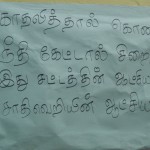 காதலித்தால் கொலை
நீதி கேட்டால் சிறை
இது சட்டத்தின் ஆட்சியா
சாதிவெறியின் ஆட்சியா